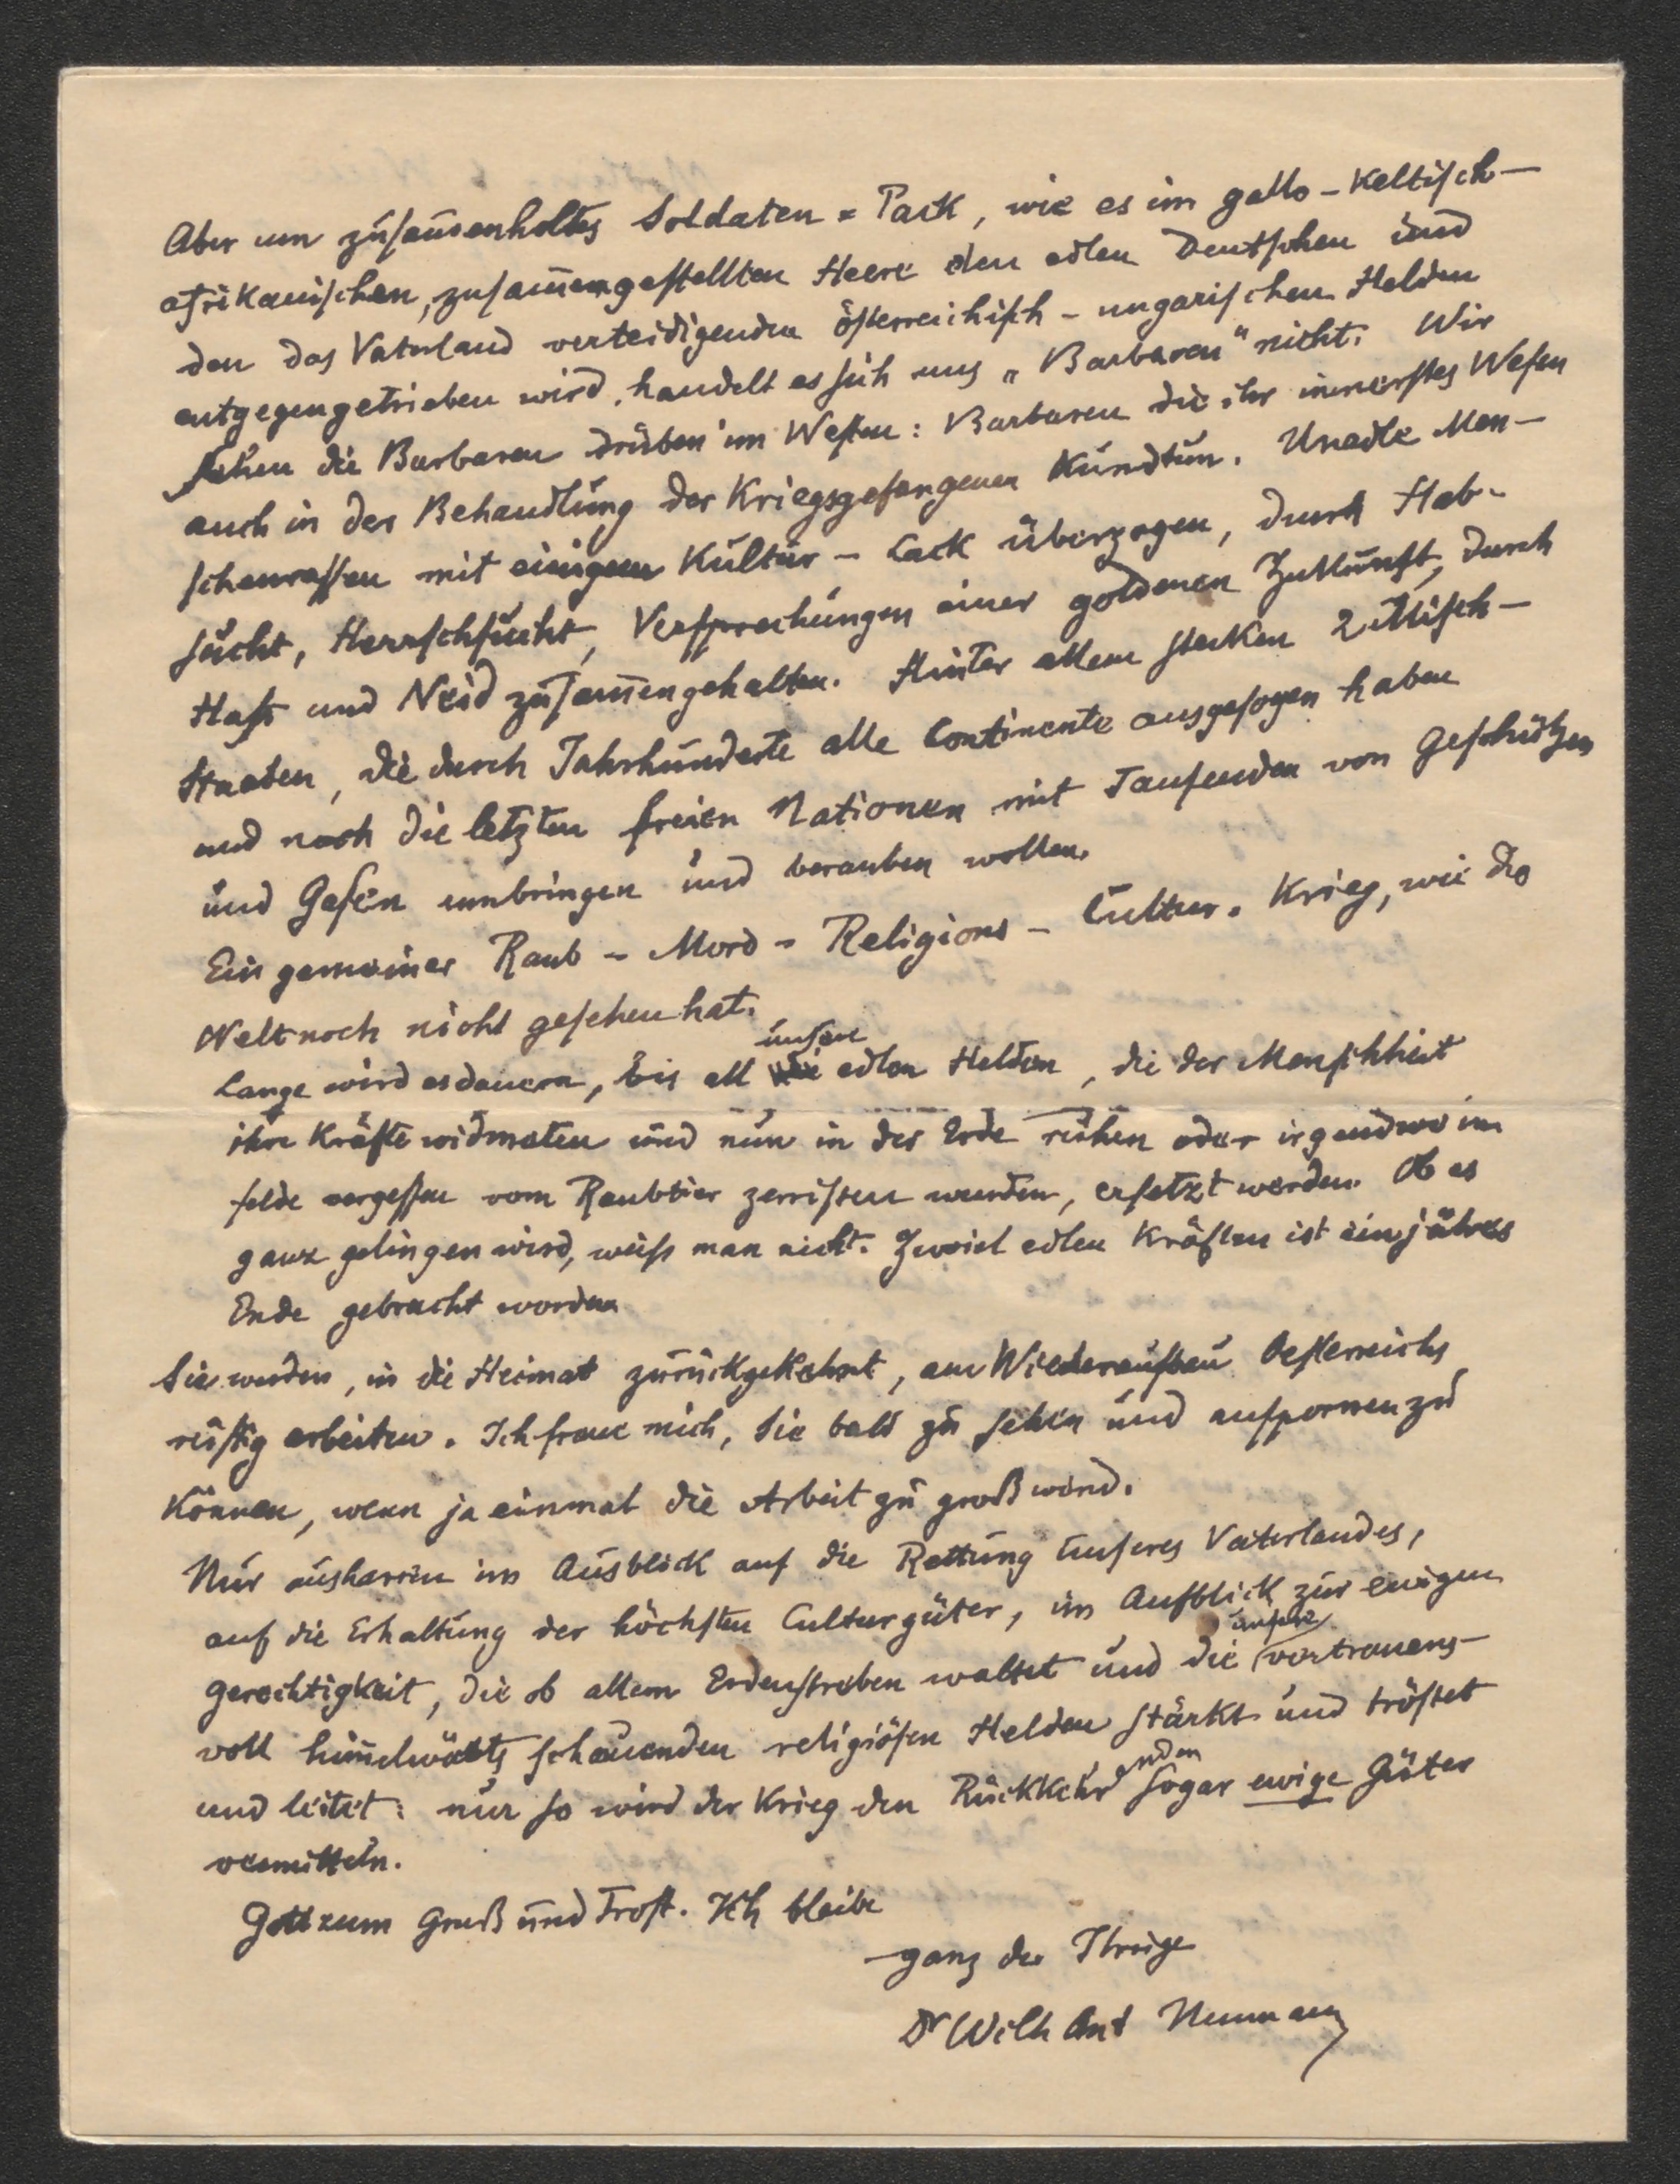 Aber um zusam̅enholtes Soldaten = Pack, wie es im gallo-keltisch-
afrikanischen, zusam̅engestellten Heere den edlen Deutschen und
den das Vaterland verteidigenden österreichisch-ungarischen Helden
entgegengetrieben wird, handelt es sich uns „Barbaren“ nicht. Wir
sehen die Barbaren drüben im Westen: Barbaren die ihr innerstes Wesen
auch in der Behandlung der Kriegsgefangenen kundtun. Unedle Men-
schenrassen mit einigem Kultur-Lack überzogen, durch Hab-
sucht, Herrschsucht, Versprechungen einer goldenen Zukunft, durch
Hass und Neid zusam̅engehalten. Hinter allem stecken 2 Misch-
Staaten, die durch Jahrhunderte alle Continente ausgesogen haben
und noch die letzten freien Nationen mit Tausenden von Geschützen
und Gasen umbringen und berauben wollen.
Ein gemeiner Raub-Mord-Religions-Cultur-Krieg, wie die
Welt noch nicht gesehen hat.
Lange wird es dauern, bis all unsere edlen Helden, die der Menschheit
ihre Kräfte widmeten und nun in der Erde ruhen oder irgendwo im
felde vergessen vom Raubtier zerrissen wurden, ersetzt werden. Ob es
ganz gelingen wird, weiss man nicht. Zuviel edlen Kräften ist ein jähes
Ende gebracht worden
Sie werden, in die Heimat zurückgekehrt, am Wiederaufbau Oesterreichs
rüstig arbeiten. Ich freue mich, Sie bald zu sehen und anspornen zu
können, wenn ja einmal die Arbeit zu groß wird.
Nur ausharren im Ausblick auf die Rettung unseres Vaterlandes,
auf die Erhaltung der höchsten Culturgüter, im Aufblick zur ewigen
Gerechtigkeit, die ob allem Erdenstreben waltet und die unsere vertrauens-
voll him̅elwärts schauenden religiösen Helden stärkt und tröstet
und leitet: nur so wird der Krieg den Rückkehrenden sogar ewige Güter
vermitteln.
Gott zum Gruß und Trost. Ich bleibe
ganz der Ihrige
Dr Wilh Ant Neumann